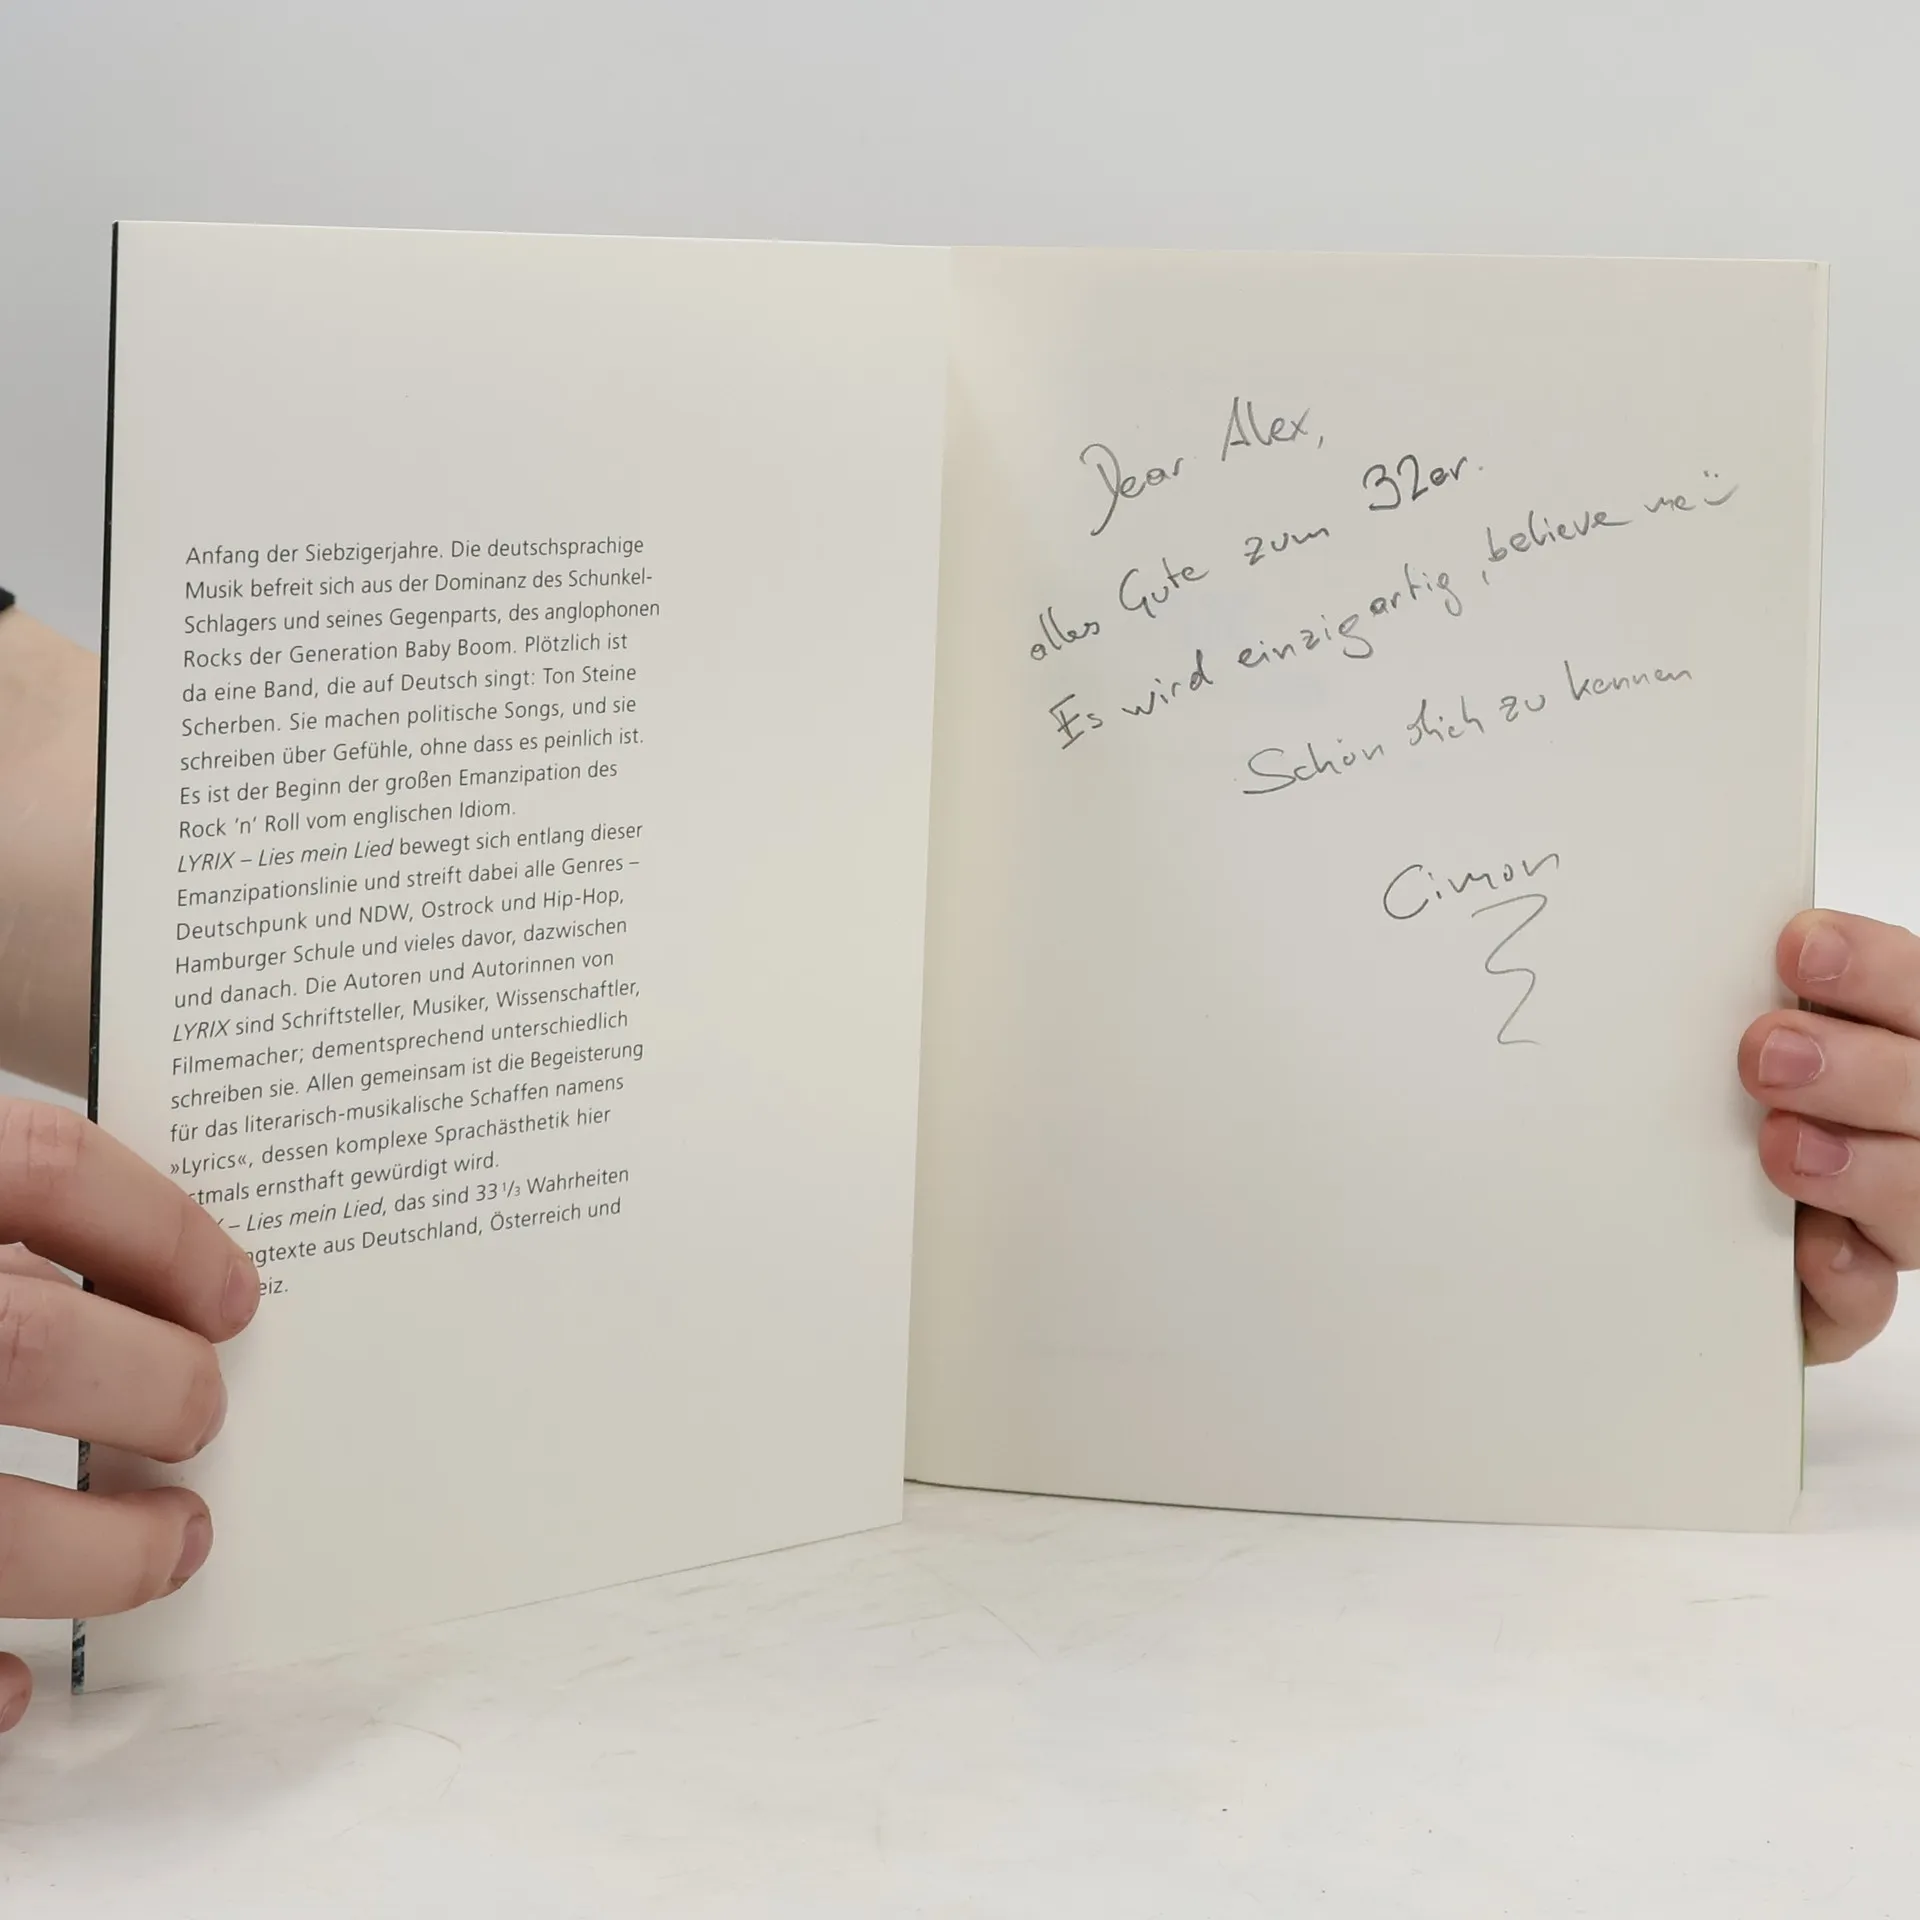 Anfang der Siebzigerjahre. Die deutschsprachige
Musik befreit sich aus der Dominanz des Schunkel-
Schlagers und seines Gegenparts, des anglophonen
Rocks der Generation Baby Boom. Plötzlich ist
da eine Band, die auf Deutsch singt: Ton Steine
Scherben. Sie machen politische Songs, und sie
schreiben über Gefühle, ohne dass es peinlich ist.
Es ist der Beginn der großen Emanzipation des
Rock ’n’ Roll vom englischen Idiom.
LYRIX – Lies mein Lied bewegt sich entlang dieser
Emanzipationslinie und streift dabei alle Genres –
Deutschpunk und NDW, Ostrock und Hip-Hop,
Hamburger Schule und vieles davor, dazwischen
und danach. Die Autoren und Autorinnen von
LYRIX sind Schriftsteller, Musiker, Wissenschaftler,
Filmemacher; dementsprechend unterschiedlich
schreiben sie. Allen gemeinsam ist die Begeisterung
für das literarisch-musikalische Schaffen namens
»Lyrics«, dessen komplexe Sprachästhetik hier
stmals ernsthaft gewürdigt wird.
– Lies mein Lied, das sind 33 1/3 Wahrheiten
gtexte aus Deutschland, Österreich und
eiz.
Dear Alex,
alles Gute zum 32er.
Es wird einzigartig, believe me ü
Schön dich zu kennen
Cimon